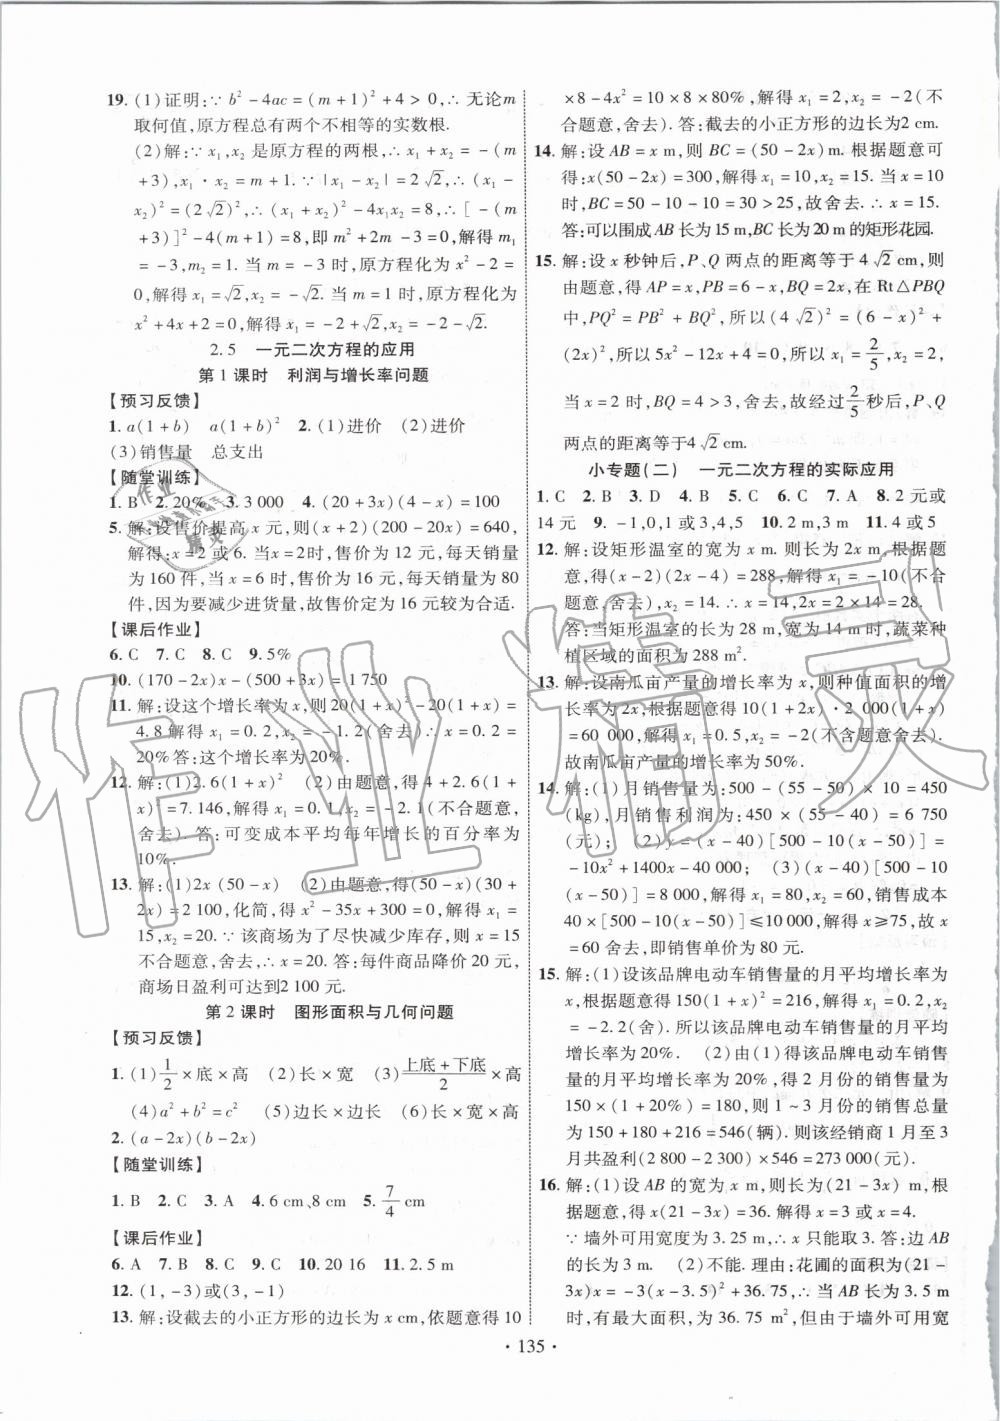 19. (1)证明:∵ b²－4ac＝(m＋1)²＋4＞0,∴ 无论m
取何值,原方程总有两个不相等的实数根.
(2)解:∵ x₁,x₂ 是原方程的两根,∴ x₁＋x₂＝－(m
＋3),x₁·x₂＝m＋1. ∵|x₁－x₂|＝2√2,∴(x₁－
x₂)²＝(2√2)²,∴(x₁＋x₂)²－4x₁x₂＝8,∴[－(m
＋3)]²－4(m＋1)＝8,即 m²＋2m－3＝0,解得 m₁
＝－3,m₂＝1. 当 m＝－3 时,原方程化为 x²－2＝
0,解得 x₁＝√2,x₂＝－√2. 当 m＝1 时,原方程化为
x²＋4x＋2＝0,解得 x₁＝－2＋√2,x₂＝－2－√2.
2.5 一元二次方程的应用
第 1 课时 利润与增长率问题
【预习反馈】
1. a(1＋b) a(1＋b)² 2. (1)进价 (2)进价
(3)销售量 总支出
【随堂训练】
1. B 2. 20% 3. 3 000 4. (20＋3x)(4－x)＝100
5. 解:设售价提高 x 元,则(x＋2)(200－20x)＝640,
解得:x＝2 或 6. 当 x＝2 时,售价为 12 元,每天销量
为 160 件,当 x＝6 时,售价为 16 元,每天销量为 80
件,因为要减少进货量,故售价定为 16 元较为合适.
【课后作业】
6. C 7. C 8. C 9. 5%
10. (170－2x)x－(500＋3x)＝1 750
11. 解:设这个增长率为x,则20(1＋x)²－20(1＋x)＝
4.8 解得 x₁＝0.2,x₂＝－1.2(舍去) 故 x＝0.2＝
20% 答:这个增长率为 20%.
12. 解:(1)2.6(1＋x)² (2)由题意,得 4＋2.6(1＋
x)²＝7.146,解得 x₁＝0.1,x₂＝－2.1(不合题意,
舍去). 答:可变成本平均每年增长的百分率为
10%.
13. 解:(1)2x (50－x) (2)由题意,得(50－x)(30＋
2x)＝2 100,化简,得 x²－35x＋300＝0,解得 x₁＝
15,x₂＝20. ∵该商场为了尽快减少库存,则 x＝15
不合题意,舍去,∴x＝20. 答:每件商品降价20 元,
商场日盈利可达到2 100 元.
第 2 课时 图形面积与几何问题
【预习反馈】
1. (1)1/2×底×高 (2)长×宽 (3)(上底＋下底)/2×高
(4)a²＋b²＝c² (5)边长×边长 (6)长×宽×高
2. (a－2x)(b－2x)
【随堂训练】
1. B 2. C 3. A 4. 6 cm、8 cm 5. 7/4 cm
【课后作业】
6. A 7. B 8. B 9. C 10. 20 16 11. 2.5 m
12. (1,－3)或(3,－1)
13. 解:设截去的小正方形的边长为 x cm,依题意得 10
×8－4x²＝10×8×80%,解得 x₁＝2,x₂＝－2(不
合题意,舍去). 答:截去的小正方形的边长为2 cm.
14. 解:设 AB＝x m,则 BC＝(50－2x)m. 根据题意可
得:x(50－2x)＝300,解得 x₁＝10,x₂＝15. 当 x＝10
时,BC＝50－10－10＝30＞25,故舍去. ∴x＝15.
答:可以围成 AB 长为 15 m,BC 长为 20 m 的矩形花园.
15. 解:设 x 秒钟后,P、Q 两点的距离等于 4√2 cm,则
由题意,得 AP＝x,PB＝6－x,BQ＝2x,在 Rt△PBQ
中,PQ²＝PB²＋BQ²,所以(4√2)²＝(6－x)²＋
(2x)²,所以 5x²－12x＋4＝0,所以 x₁＝2/5,x₂＝2,
当 x＝2 时,BQ＝4＞3,舍去,故经过2/5秒后,P、Q
两点的距离等于4√2 cm.
小专题(二) 一元二次方程的实际应用
1. C 2. B 3. D 4. B 5. C 6. C 7. A 8. 2元或
14 元 9. －1,0,1或 3,4,5 10. 2 m,3 m 11. 4或5
12. 解:设矩形温室的宽为 x m. 则长为 2x m,根据题
意,得(x－2)(2x－4)＝288,解得 x₁＝－10(不合
题意,舍去),x₂＝14. ∴x＝14,2x＝2×14＝28.
答:当矩形温室的长为 28 m,宽为 14 m 时,蔬菜种
植区域的面积为 288 m².
13. 解:设南瓜亩产量的增长率为 x,则种值面积的增
长率为 2x. 根据题意,得 10(1＋2x)·2 000(1＋x)
＝60 000,解得 x₁＝0.5,x₂＝－2(不含题意舍去).
故南瓜亩产量的增长率为 50%.
14. 解:(1)月销售量为:500－(55－50)×10＝450
(kg),月销售利润为:450×(55－40)＝6 750
(元); (2)y＝(x－40)[500－10(x－50)]＝
－10x²＋1400x－40 000; (3)(x－40)[500－10
(x－50)]＝8 000,解得 x₁＝80,x₂＝60,销售成本
40×[500－10(x－50)]≤10 000,解得 x≥75,故 x
＝60 舍去,即销售单价为 80 元.
15. 解:(1)设该品牌电动车销售量的月平均增长率为
x,根据题意,得 150(1＋x)²＝216,解得x₁＝0.2,x₂
＝－2.2(舍). 所以该品牌电动车销售量的月平均
增长率为 20%. (2)由(1)得该品牌电动车销售
量的月平均增长率为 20%,得 2 月份的销售量为
150×(1＋20%)＝180,则 1～3 月份的销售总量
为 150＋180＋216＝546(辆). 则该经销商 1 月至 3
月共盈利(2 800－2 300)×546＝273 000(元).
16. 解:(1)设 AB 的宽为 x m,则长为(21－3x) m,根
据题意,得 x(21－3x)＝36. 解得 x＝3 或 x＝4.
∵墙外可用宽度为 3.25 m,∴x＝3. 答:边 AB
的长为 3 m. (2)不能. 理由:花圃的面积为(21－
3x)x＝－3(x－3.5)²＋36.75,当 AB 长为 3.5 m
时,有最大面积,为 36.75 m². 但由于墙外可用宽
· 135 ·
作业精灵